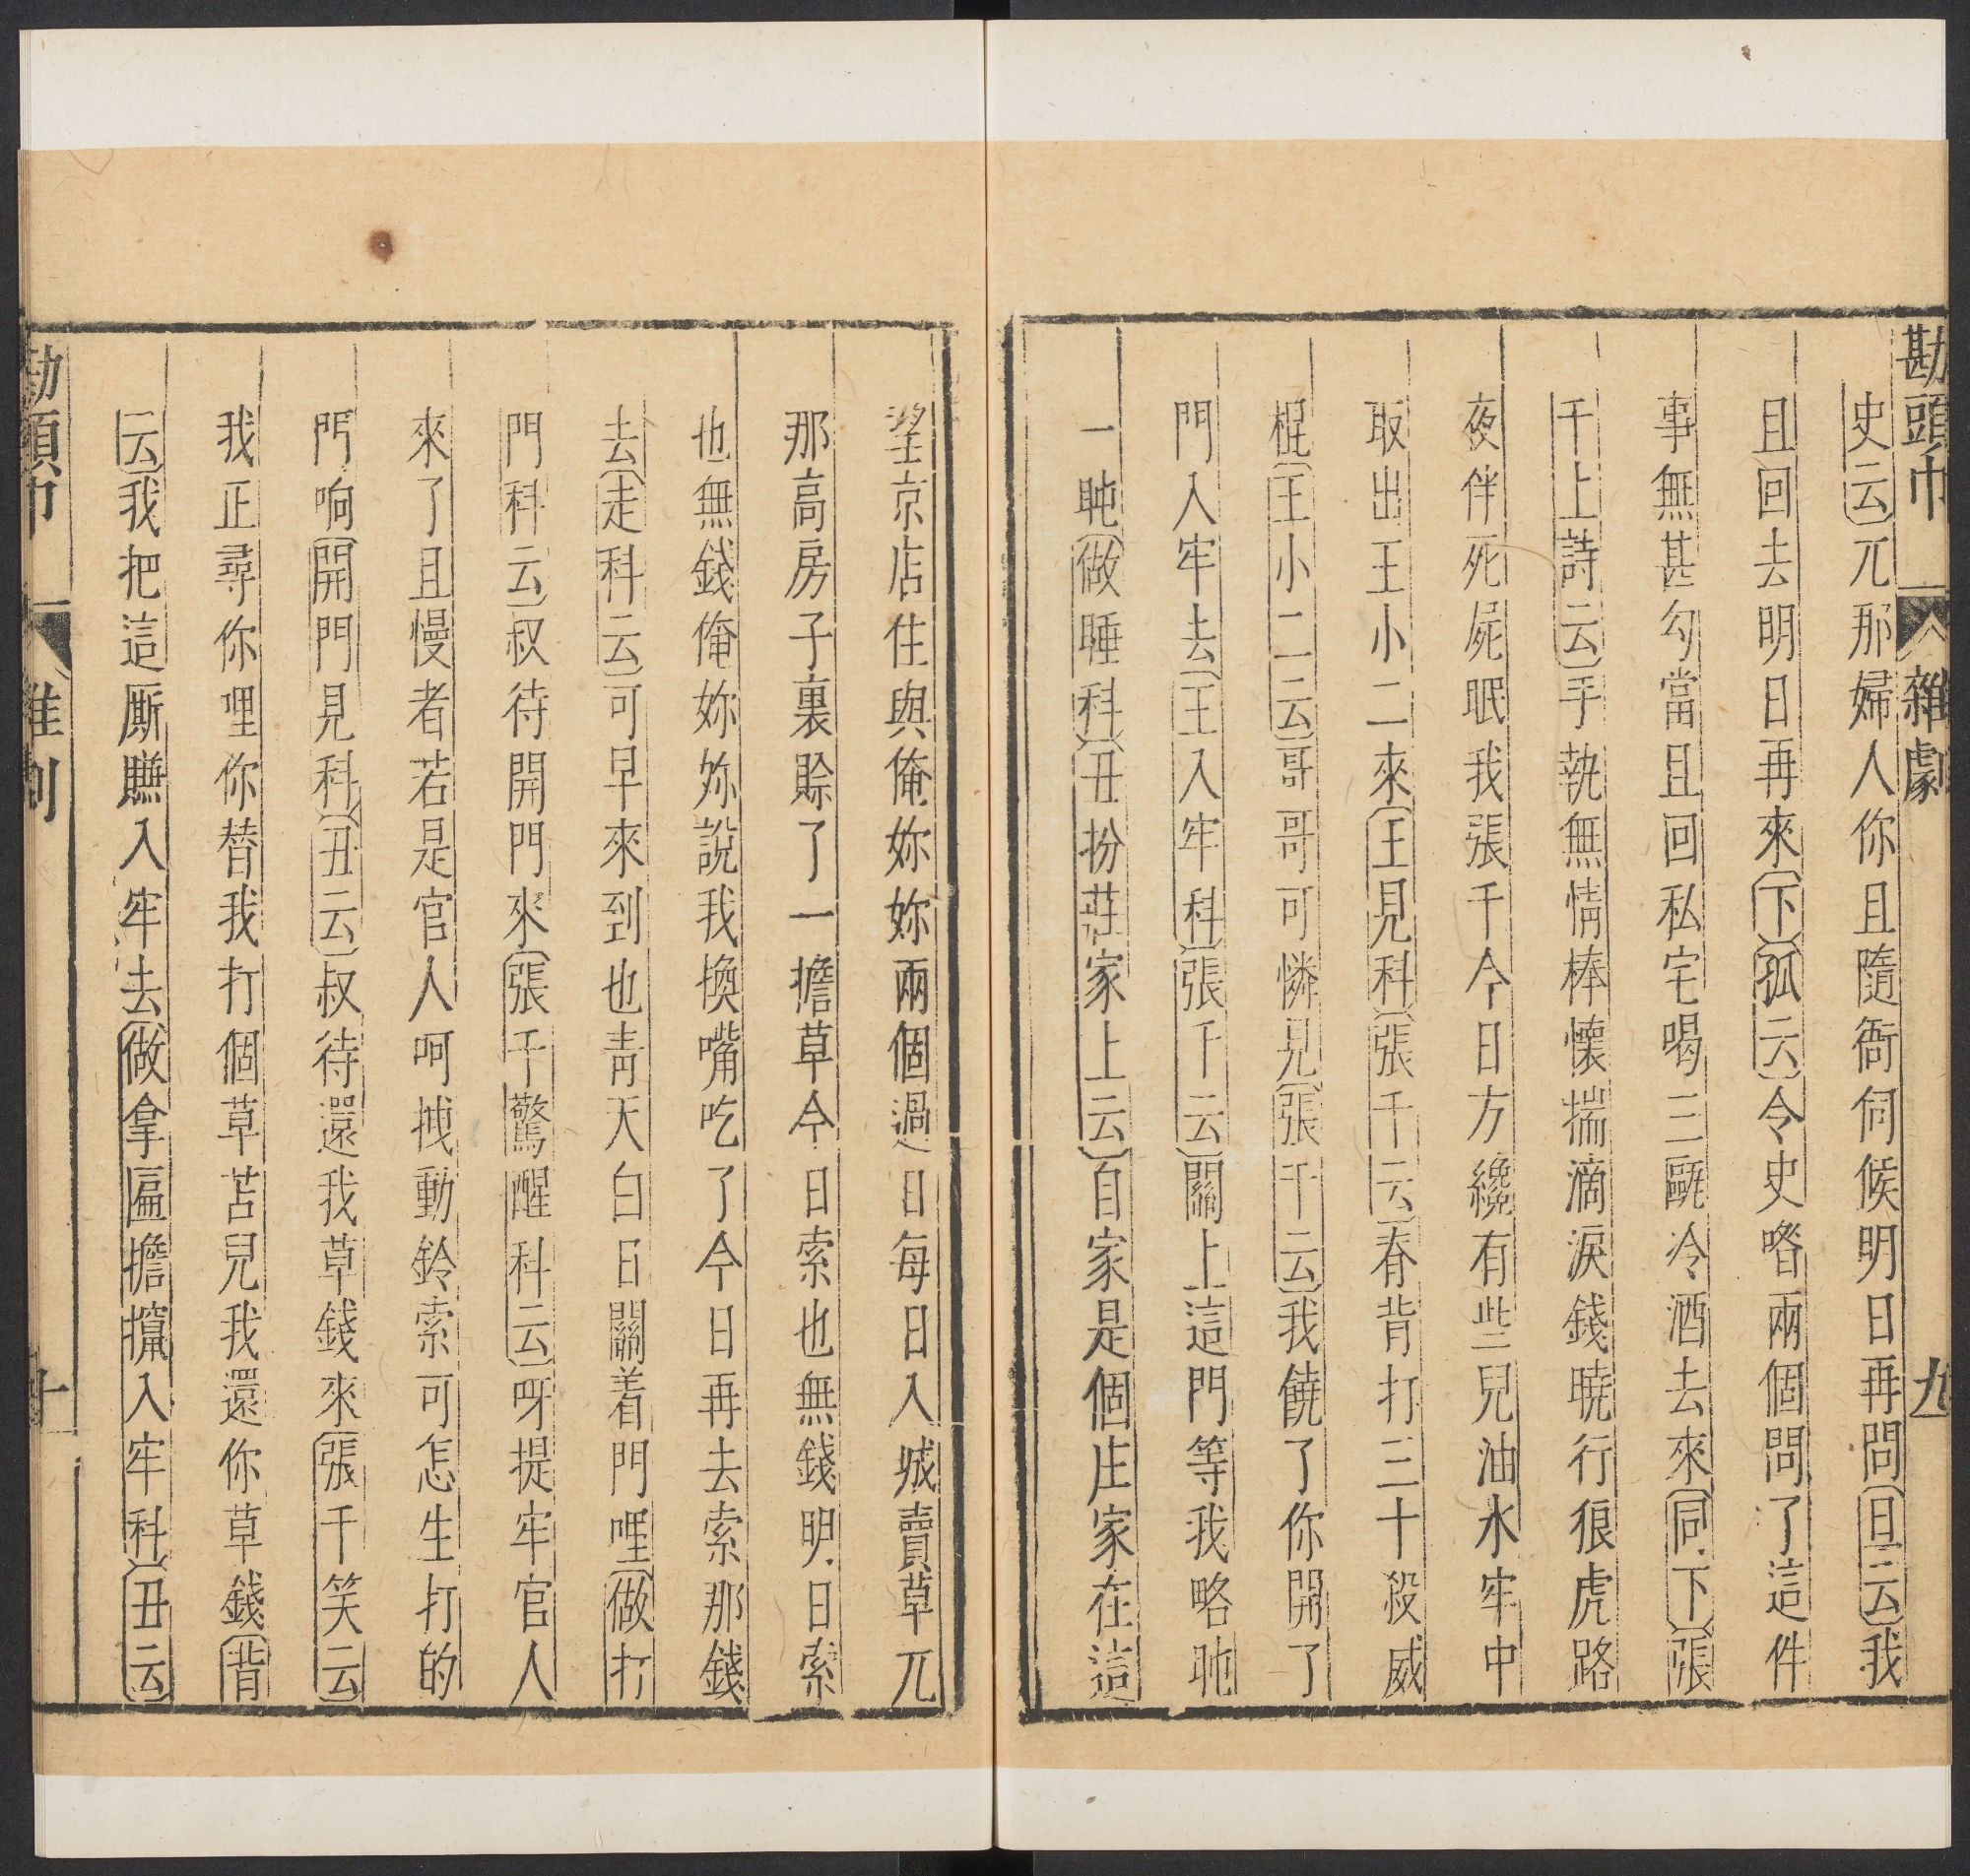 勘頭巾 雜劇 九
史云兀那婦人你且隨衙伺候明日再問旦云我
且回去明日再來下孤云令史喒兩個問了這件
事無甚勾當且回私宅喝三甌冷酒去來同下張
千上詩云手執無情棒懷揣滴淚錢曉行狼虎路
夜伴死屍眠我張千今日方纔有些兒油水牢中
取出王小二來王見科張千云舂背打三十殺威
棍王小二云哥哥可憐見張千云我饒了你開了
門入牢去王入牢科張千云關上這門等我略盹
一盹做睡科丑扮莊家上云自家是個庄家在這
望京店住與俺妳妳兩個過日每日入城賣草兀
那高房子裏賒了一擔草今日索也無錢明日索
也無錢俺妳妳說我換嘴吃了今日再去索那錢
去走科云可早來到也青天白日關着門哩做打
門科云叔待開門來張千驚醒科云呀提牢官人
來了且慢者若是官人呵拽動鈴索可怎生打的
門响開門見科丑云叔待還我草錢來張千笑云
我正尋你哩你替我打個草苫兒我還你草錢背
云我把這厮賺入牢去做拿匾擔攛入牢科丑云
勘頭巾 雜劇 十